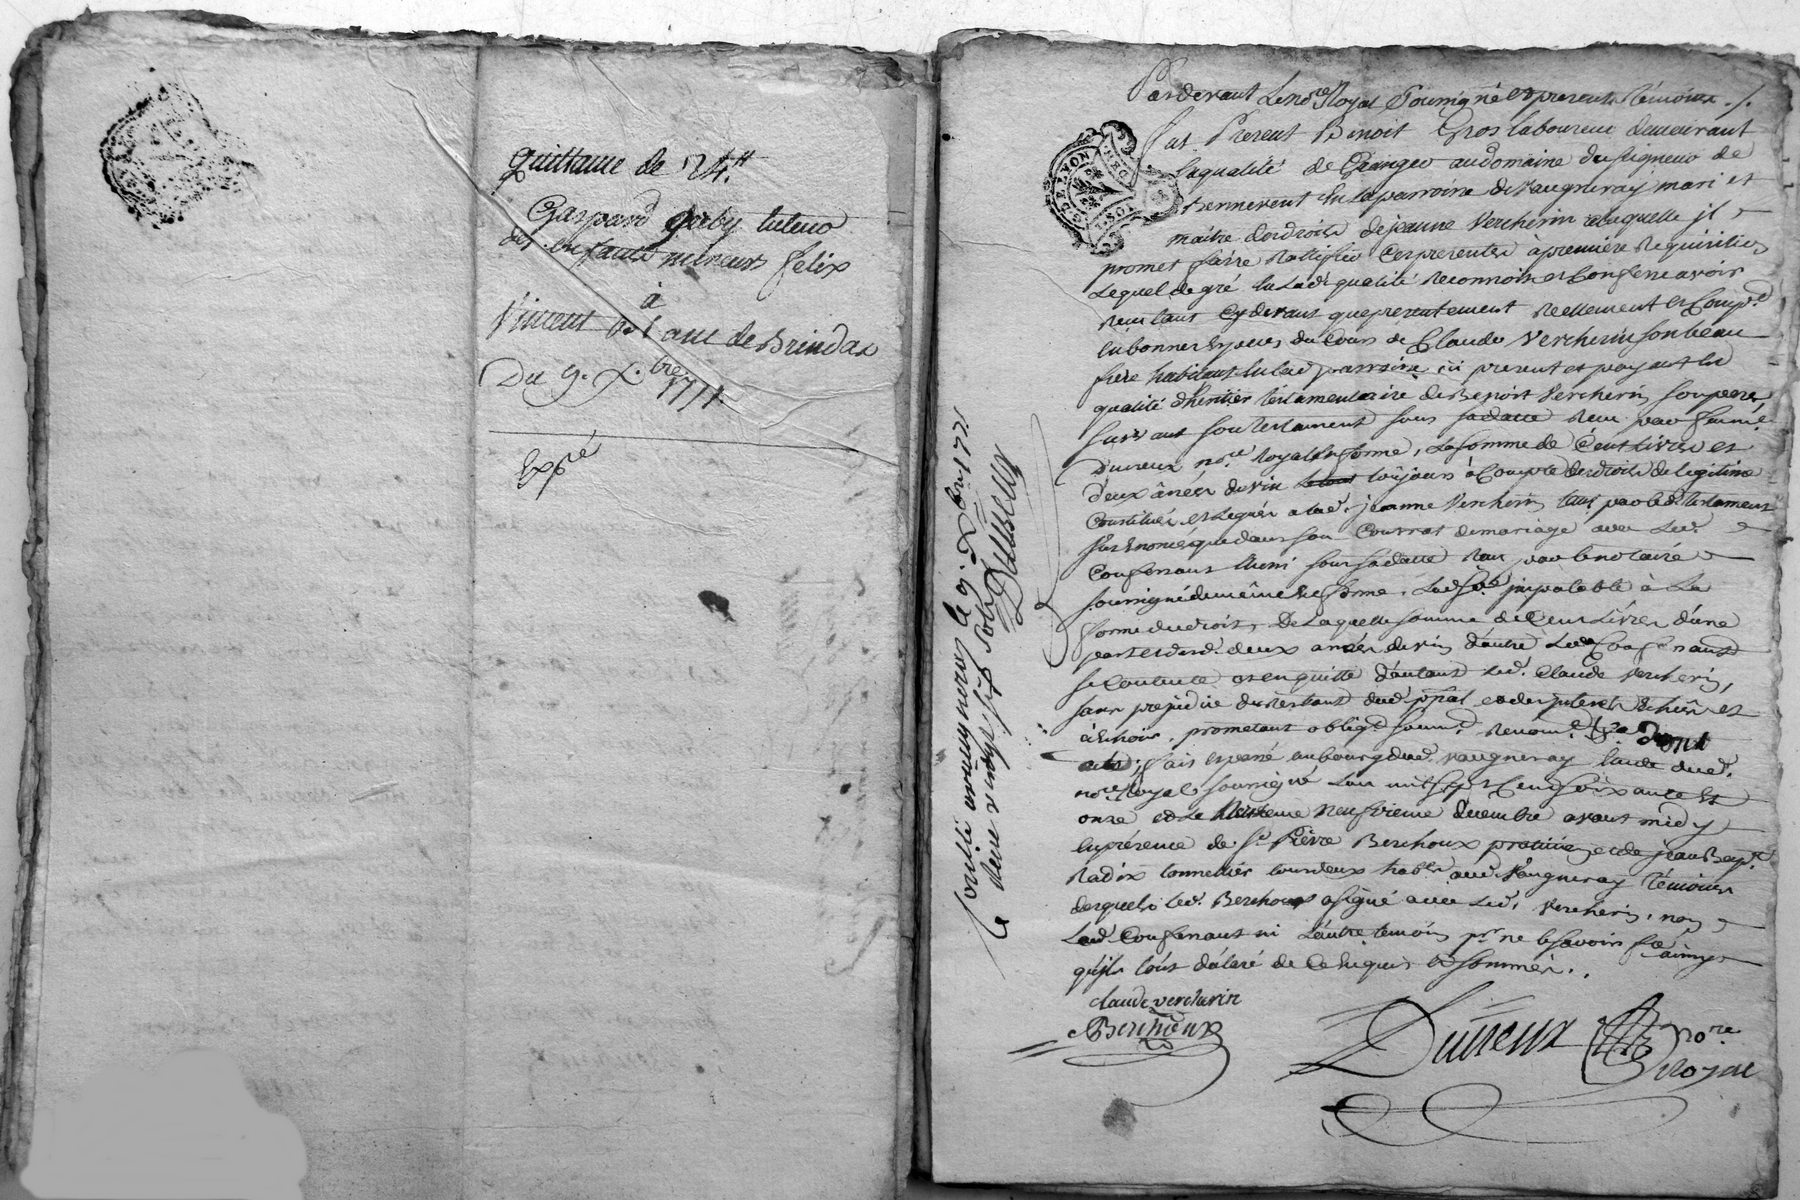 quittance de 24.ᵗᵗ
Gaspard gorby tuteur
des enfants mineurs felix
à
Vincent de Brindas
Du 9. X.bre 1771.
Expé
GDE LYON
Pardevant Le no.re Royal Soussigné et presents témoins ./.
fut Present Benoit Gros laboureur demeurant
en qualité de Granger au domaine du seigneur de
Bennevent en la parroisse de Vaugneray mari et
maître des droits de jeanne Vercherin à laquelle jl
promet faire Rattiffier Ces presentes a première Requisition
Lequel de gré en lad. qualité Reconnoit et Confesse avoir
Reçu tant Cy devant que presentement Reellement et Compt.
en bonnes Especes du Cours de Claude Vercherin son beau
frere habitant en lad. parroisse ici present et payant en
qualité d'heritier testamentaire de Benoit Vercherin son pere
suivant son testament sous sa datte Reçu par
Dutreux no.re Royal en forme, La somme de Cent Livres et
deux ânées de vin toujours à Compte des droits de legitime
Constitués et Legués a lad. jeanne Vercherin tant par led. testament
sus Enoncé que dans son Contrat de mariage avec Led.
Confessant aussi sous sa datte Reçu par le notaire
soussigné de même En forme, jmputable à La
forme du droit, De Laquelle somme de Cent Livres d'une
part et desd. deux anées de vin d'autre Led. Confessant
se Contente et en quitte d'autant Led. Claude Vercherin,
sans prejudice du Restant dud. p̄pal et des jnterets Echus et
à Echoir, promettant oblig.t soum.t Renon.t &.a Dont
acte; fait et passé au bourg dud. Vaugneray Etude dud.
no.re Royal soussigné L'an mil sept Cent soixante et
onze et Le neufvieme decembre avant midy
En présence de s.r Pierre Berchoux praticien et de jean Bapt.
Radix tonnellier tous deux hab.ts aud. Vaugneray témoins
desquels Led. Berchoux a signé avec Led. Vercherin, non
Led. Confessant ni L'autre temoin p.r ne le savoir faire ainsy
qu'ils l'ont déclaré de Ce Enquis et sommés.
claude vercherin
Berchoux
Dutreux no.re
Royal
Controllé à vaugneray le 9. Xbre 1771.
Dutreux